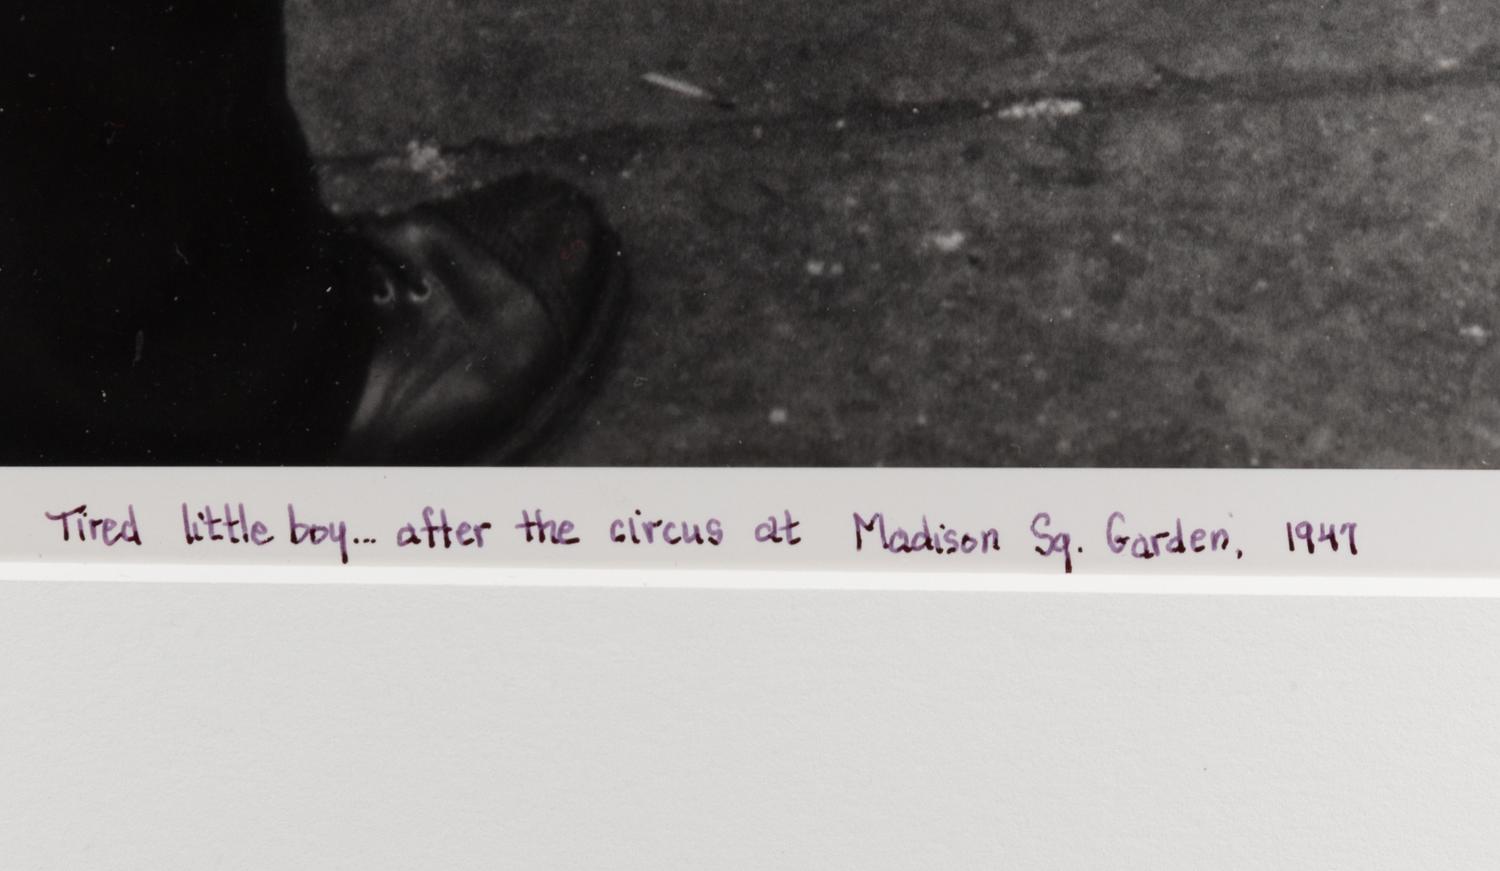 Tired little boy... after the circus at Madison Sq. Garden, 1947